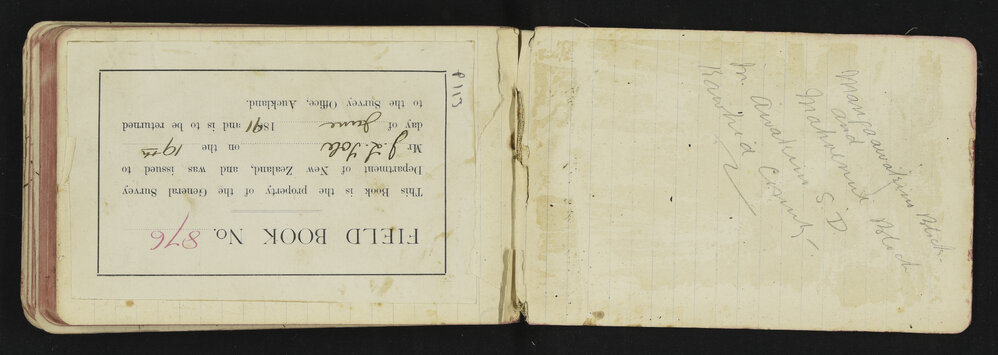 FIELD BOOK No. 876
This Book is the property of the General Survey
Department of New Zealand, and was issued to
Mr J. L. Tole on the 19th
day of June 1891 and is to be returned
to the Survey Office, Auckland.
P 113
Mangaawakino Block
and
Mahoenui Block
in Awakino S.D
Kawhia County